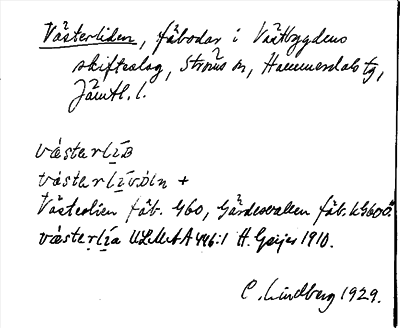 Västerliden, fäbodar i Västbygdens
skifteslag, Ströms sn, Hammerdals tg,
Jämtl. l.
västerlīƨ
västerlīv.dn +
Västerlien fäb. G60, Gärdesvallen fäb. LG60Ö.
västerlīa ULMA A 446:1 H. Geijer 1910.
C. Lindberg 1929.